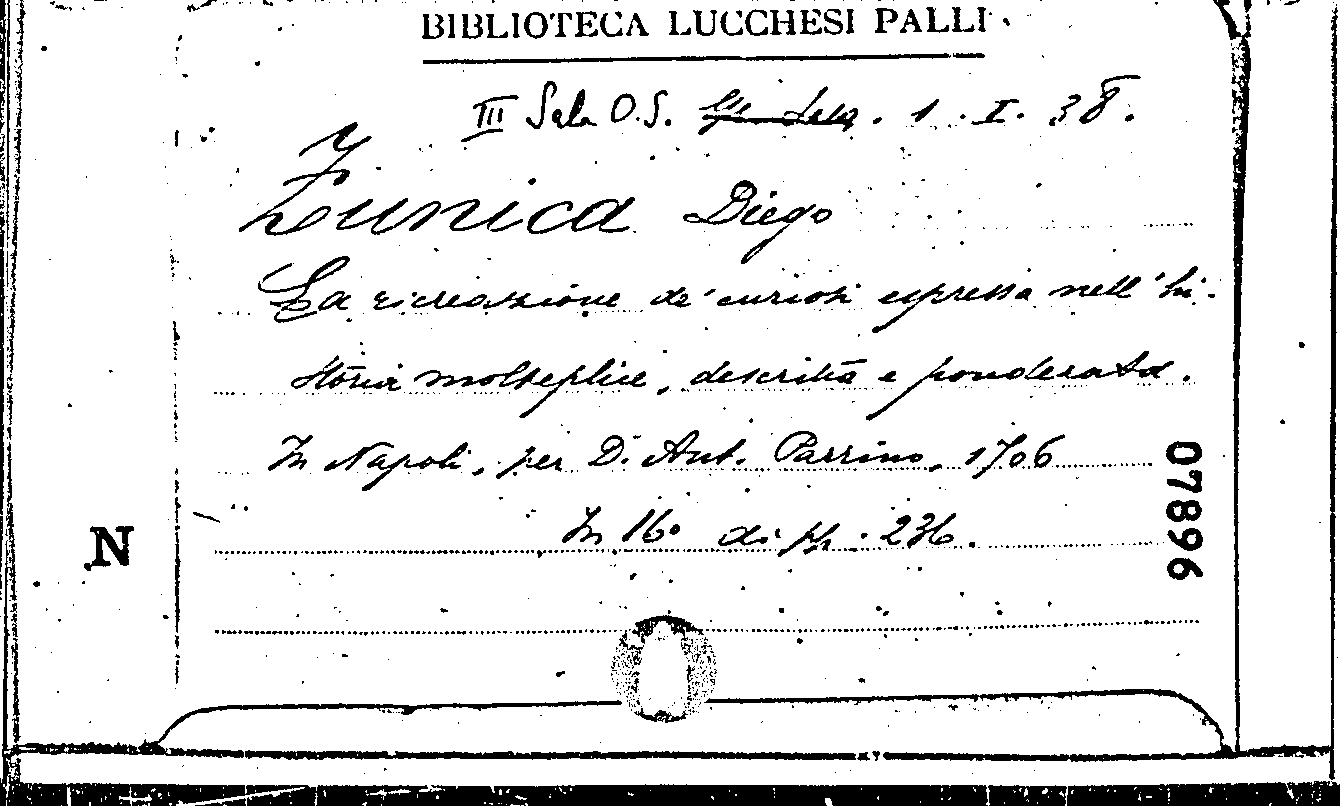 BIBLIOTECA LUCCHESI PALLI
III Sala O.S. 1. I. 38.
Zunica Diego
La ricreazione de' curiosi espressa nell' hi-
storia molteplice, descritta e ponderata.
In Napoli, per D. Ant. Parrino, 1706
In 16° di pp. 236.
N
07896